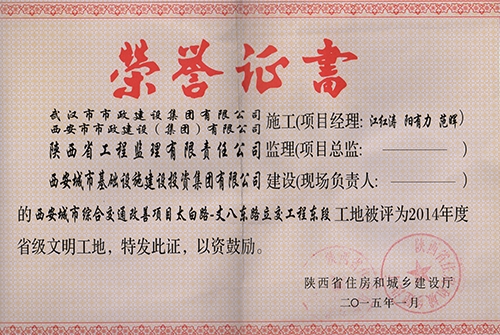 荣誉证书
武汉市市政建设集团有限公司
西安市市政建设(集团)有限公司
施工(项目经理: 江红涛 阳有力 范晖)
陕西省工程监理有限责任公司 监理(项目总监: ————)
西安城市基础设施建设投资集团有限公司 建设(现场负责人: ————)
的西安城市综合交通改善项目太白路-丈八东路立交工程东段 工地被评为2014年度
省级文明工地，特发此证，以资鼓励。
陕西省住房和城乡建设厅
二〇一五年一月